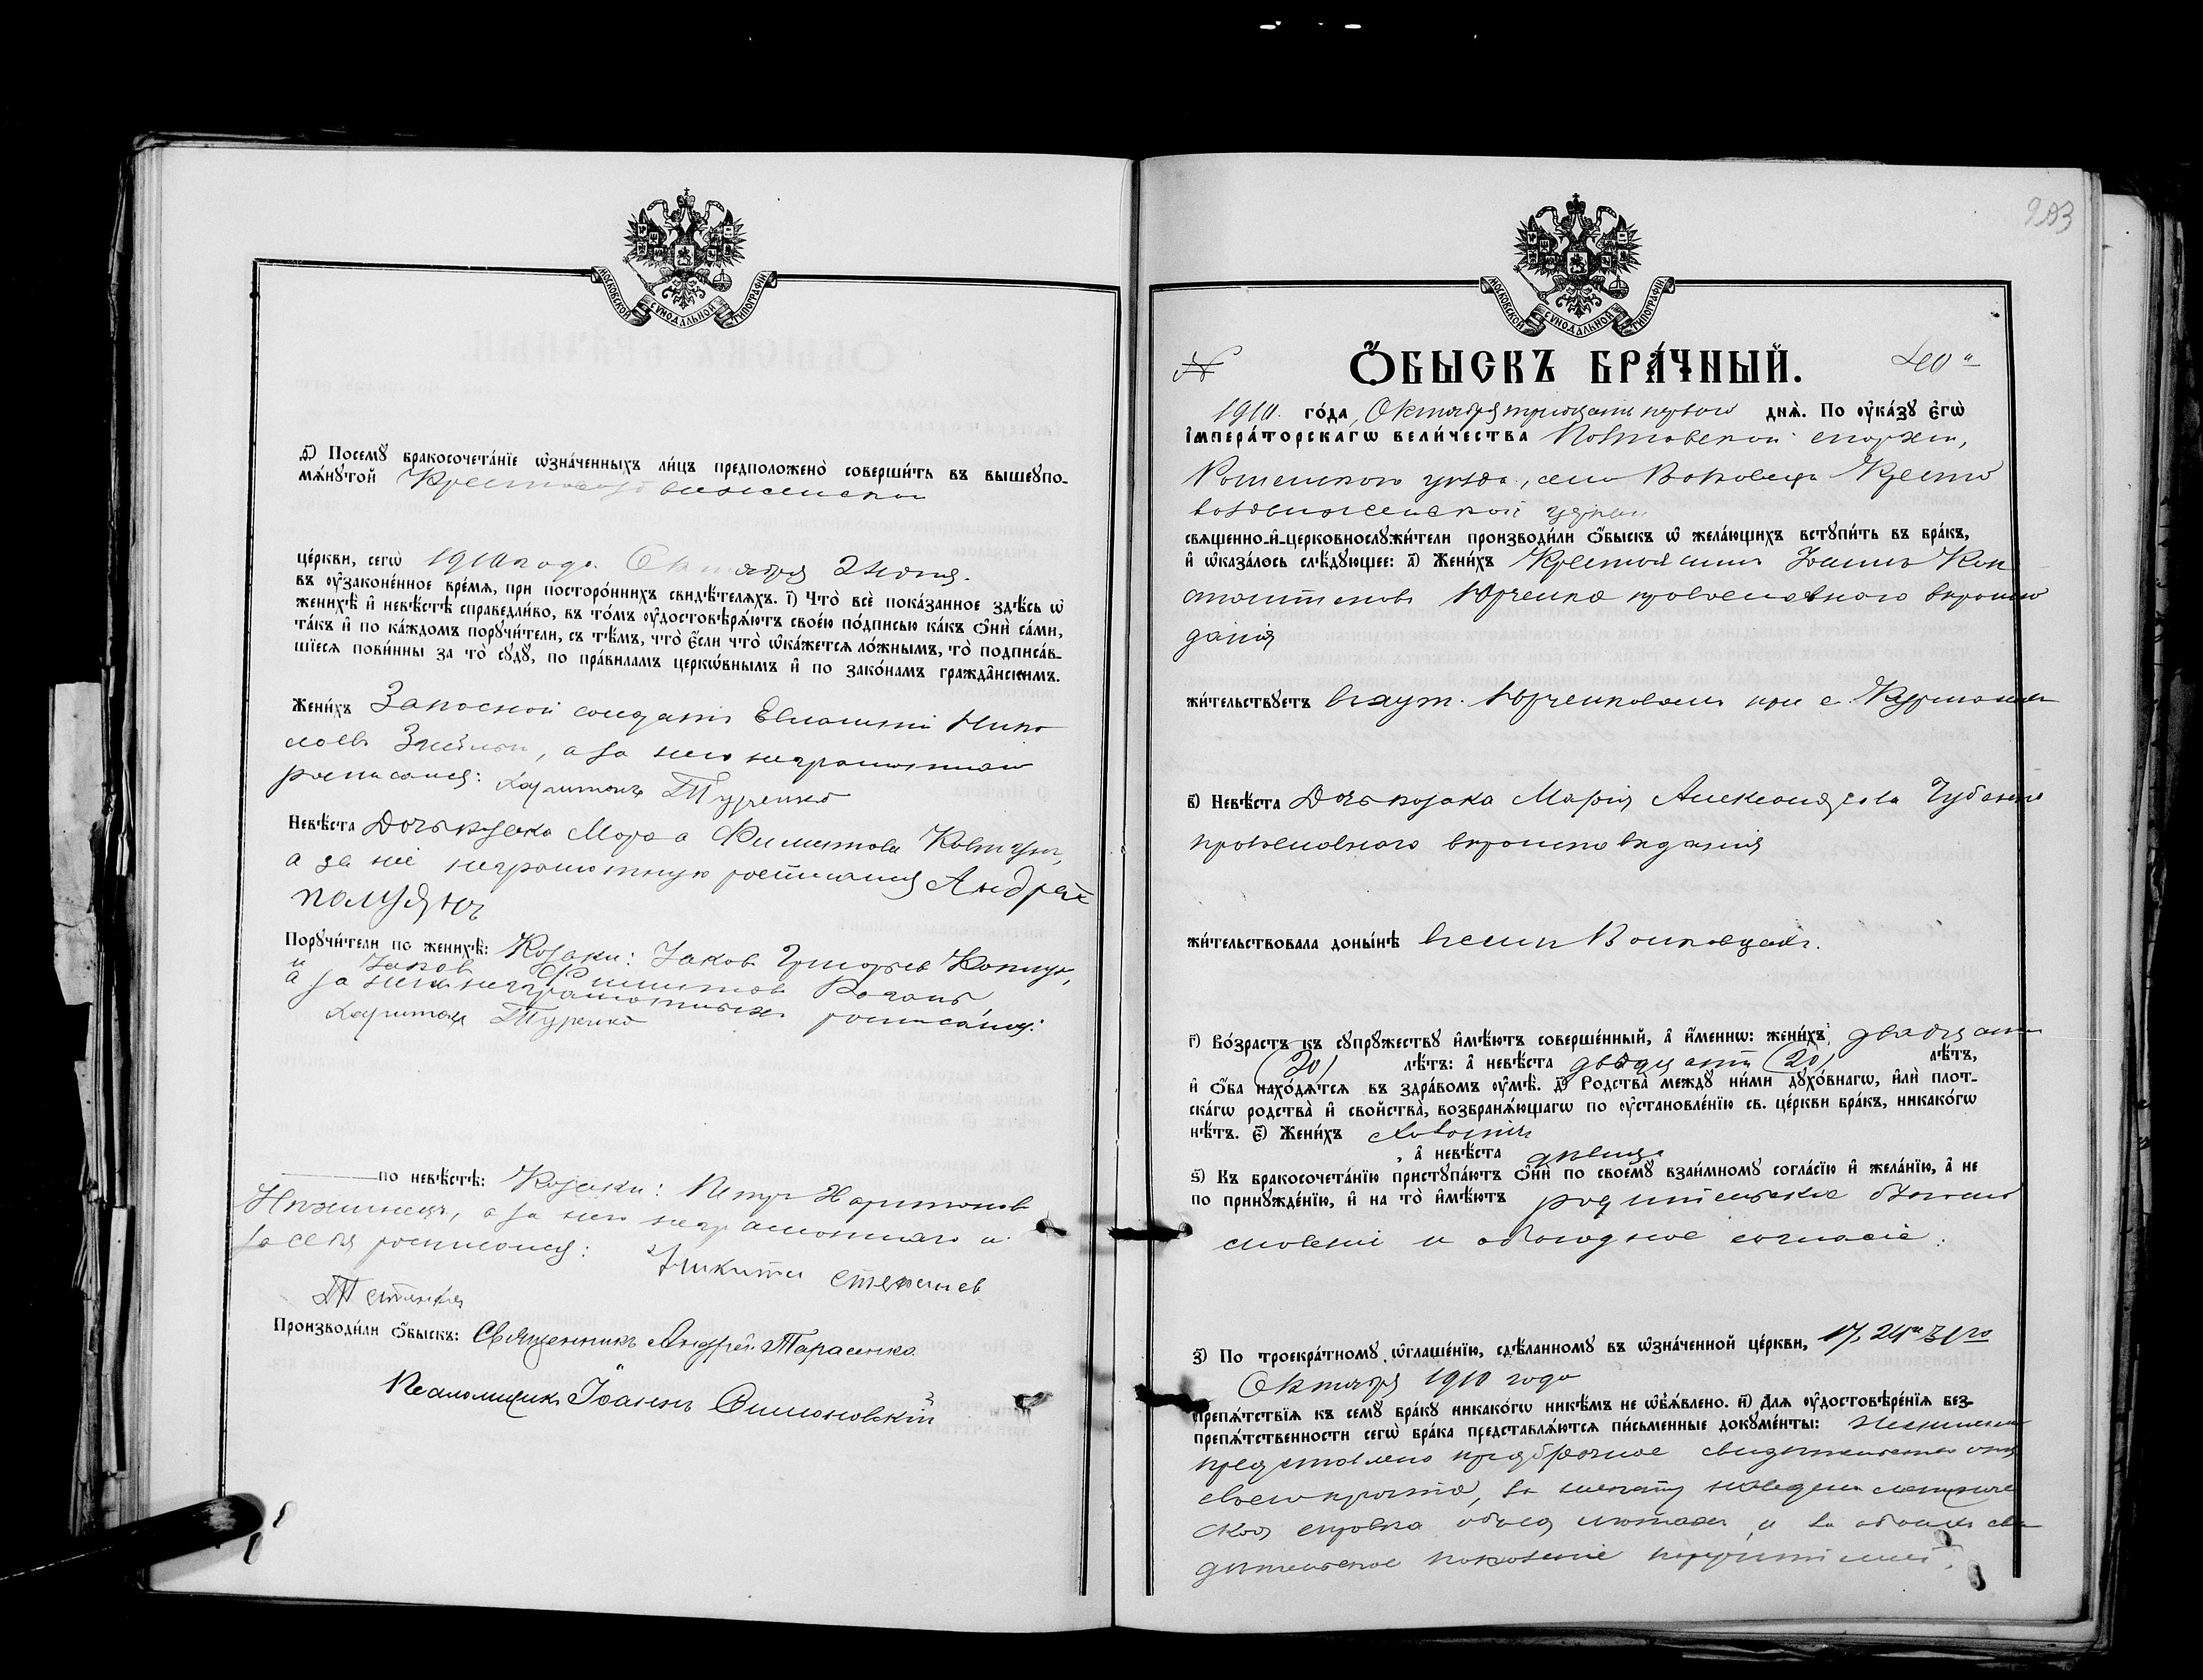 МОСКОВСКОЙ СѴНОДАЛЬНОЙ ТИПОГРАФІИ
ѳ҃) Посемꙋ̀ бракосочета́нїе ѡ҆зна́ченныхъ ли́цъ предположено̀ соверши́ть въ вышеꙋпо-
мѧ́нꙋтой Крестовоздвиженской
це́ркви, сегѡ̀ 1910 года Октября 2 дня.
въ ᲂу҆зако́ненное вре́мѧ, при посторо́ннихъ свидѣ́телѧхъ. і҃) Что̀ всѐ пока́занное здѣ́сь ѡ҆
женихѣ̀ и҆ невѣ́стѣ справедли́во, въ то́мъ ᲂу҆достовѣрѧ́ютъ свое́ю по́дписью ка́къ ѻ҆нѝ са́ми,
та́къ и҆ по ка́ждомъ порꙋчи́тели, съ тѣ́мъ, что̀ є҆́сли что̀ ѡ҆ка́жетсѧ ло́жнымъ, то̀ подписа́в-
шїесѧ пови́нны за то̀ сꙋдꙋ̀, по пра́виламъ церко́внымъ и҆ по зако́намъ гражда́нскимъ.
Жени́хъ Запасной солдатъ Евлампій Нико
лаевъ, а за него неграмотнаго
росписался: Харитонъ Турченко
Невѣ́ста Дочь козака Марѳа Филиппова Ковтунъ,
а за неё неграмотную росписался Андрей
Порꙋчи́тели по женихѣ̀: Козаки: Яковъ Григорьев
и Яковъ Филиппов
а за нихъ неграмотныхъ росписался:
Харитонъ Турченко
по невѣ́стѣ: Козаки: Петръ Харитоновъ
а за него неграмотнаго и
за себя росписался: Никита Стефанов
Производи́ли ѻ҆́быскъ: Священникъ Андрей Тарасенко
Псаломщикъ Іоаннъ Симоновскій
903
МОСКОВСКОЙ СѴНОДАЛЬНОЙ ТИПОГРАФІИ
№ Ѻ҆́БЫСКЪ БРА́ЧНЫЙ. 40
1910. го́да, Октября тридцать перваго днѧ̀. По ᲂу҆ка́зꙋ є҆гѡ̀
і҆мпера́торскагѡ вели́чества Полтавской епархіи,
Роменского уѣзда, села Волковецъ Кресто
воздвиженской церкви
свѧщенно-и҆-церковнослꙋжи́тели производи́ли ѻ҆́быскъ ѡ҆ жела́ющихъ встꙋпи́ть въ бра́къ,
и҆ ѡ҆каза́лось слѣ́дꙋющее: а҃) Жени́хъ Крестьянинъ Іоаннъ Кон
стантиновъ Юрченко православного вѣроиспо
данія
жи́тельствꙋетъ въ хут. Юрченковомъ при с.
в҃) Невѣ́ста Дочь козака Марія Александрова
православного вѣроисповѣданія
жи́тельствовала доны́нѣ въ селѣ Волковцахъ.
г҃) Во́зрастъ къ сꙋпрꙋ́жествꙋ и҆мѣ́ютъ соверше́нный, а҆ и҆́меннѡ: жени́хъ двадцати
(20) лѣ́тъ: а҆ невѣ́ста двадцати (20) лѣ́тъ,
и҆ ѻ҆́ба нахо́дѧтсѧ въ здра́вомъ ᲂу҆мѣ̀. д҃) Родства̀ междꙋ̀ ни́ми дꙋхо́внагѡ, и҆лѝ плот-
ска́гѡ родства̀ и҆ сво́йства̀, возбранѧ́ющагѡ по ᲂу҆становле́нїю св. це́ркви бра́къ, никако́гѡ
нѣ́тъ. є҃) Жени́хъ холостъ
, а҆ невѣ́ста дѣвица
ѕ҃) Къ бракосочета́нїю пристꙋпа́ютъ ѻ҆нѝ по своемꙋ̀ взаи́мномꙋ согла́сїю и҆ жела́нїю, а҆ не
по принꙋжде́нїю, и҆ на то̀ и҆мѣ́ютъ родительское благо
словеніе и обоюдное согласіе.
з҃) По троекра́тномꙋ ѡ҆глаше́нїю, сдѣ́ланномꙋ въ ѡ҆зна́ченной це́ркви, 17, 24 и 31 го
Октября 1910 года
препѧ́тствїѧ къ семꙋ̀ бра́кꙋ никако́гѡ никѣ́мъ не ѡ҆б̾ѧ́влено. и҃) Длѧ ᲂу҆достовѣре́нїѧ без-
препѧ́тственности сегѡ̀ бра́ка представлѧ́ютсѧ пи́сьменные докꙋме́нты: Женихомъ
представлено предбрачное свидѣтельство отъ
своего причта, за невѣсту наведена метриче
ская справка о ея лѣтахъ, и за обоихъ сви
дѣтельское показаніе поручителей.